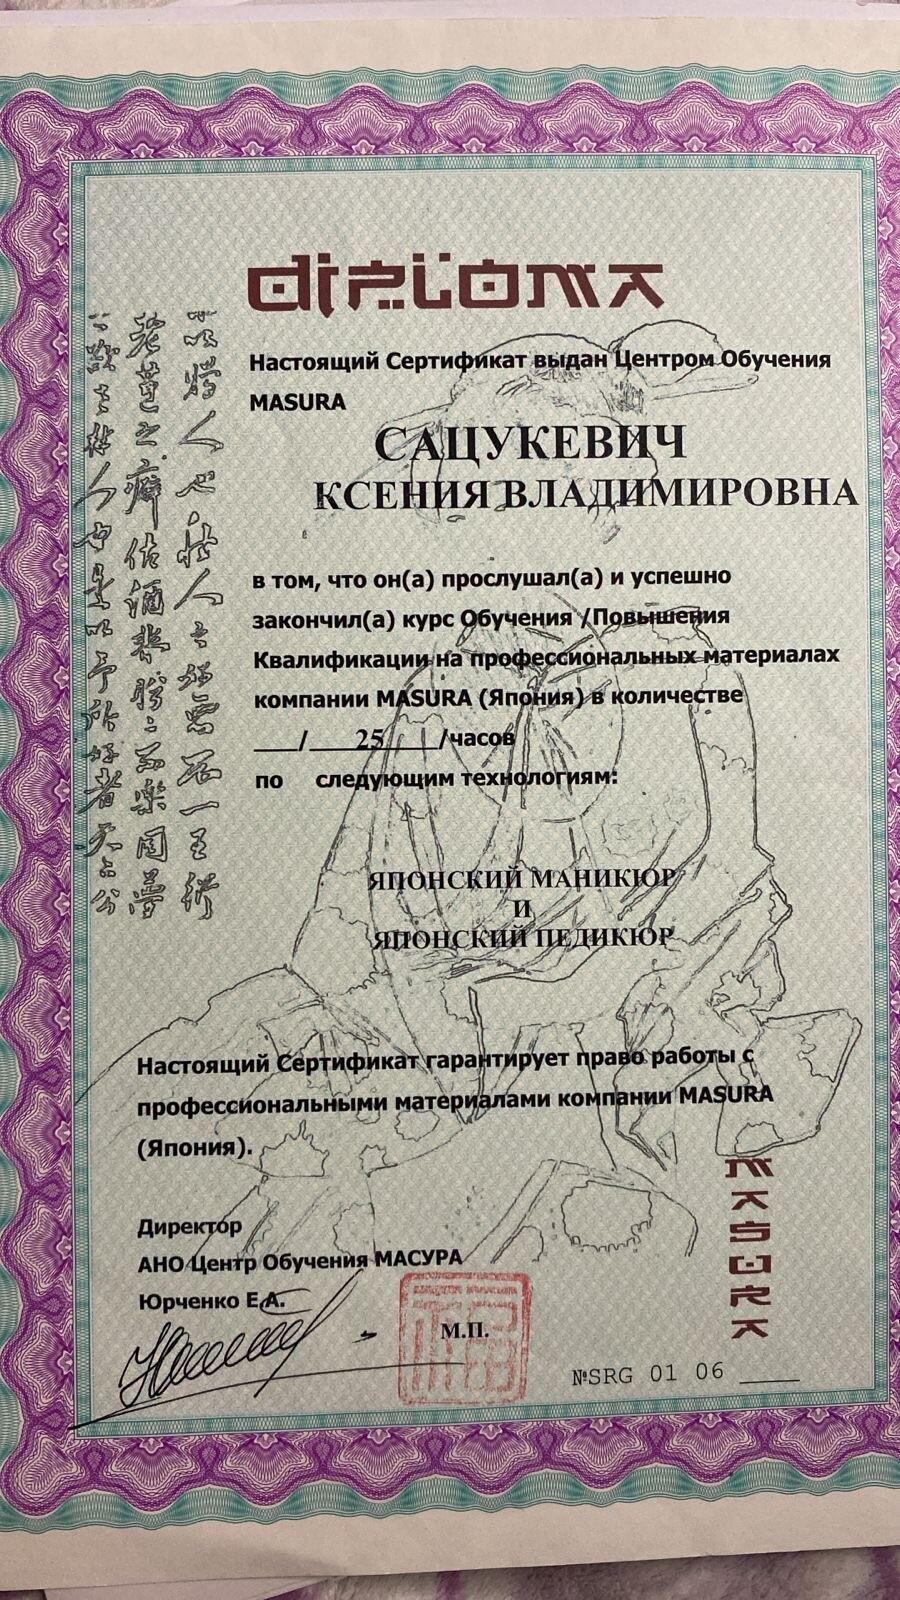 diploma
Настоящий Сертификат выдан Центром Обучения
MASURA
САЦУКЕВИЧ
КСЕНИЯ ВЛАДИМИРОВНА
в том, что он(а) прослушал(а) и успешно
закончил(а) курс Обучения /Повышения
Квалификации на профессиональных материалах
компании MASURA (Япония) в количестве
___/____25____/часов
по следующим технологиям:
ЯПОНСКИЙ МАНИКЮР
И
ЯПОНСКИЙ ПЕДИКЮР
Настоящий Сертификат гарантирует право работы с
профессиональными материалами компании MASURA
(Япония).
MASURA
Директор
АНО Центр Обучения МАСУРА
Юрченко Е.А.
М.П.
№SRG 01 06 ____